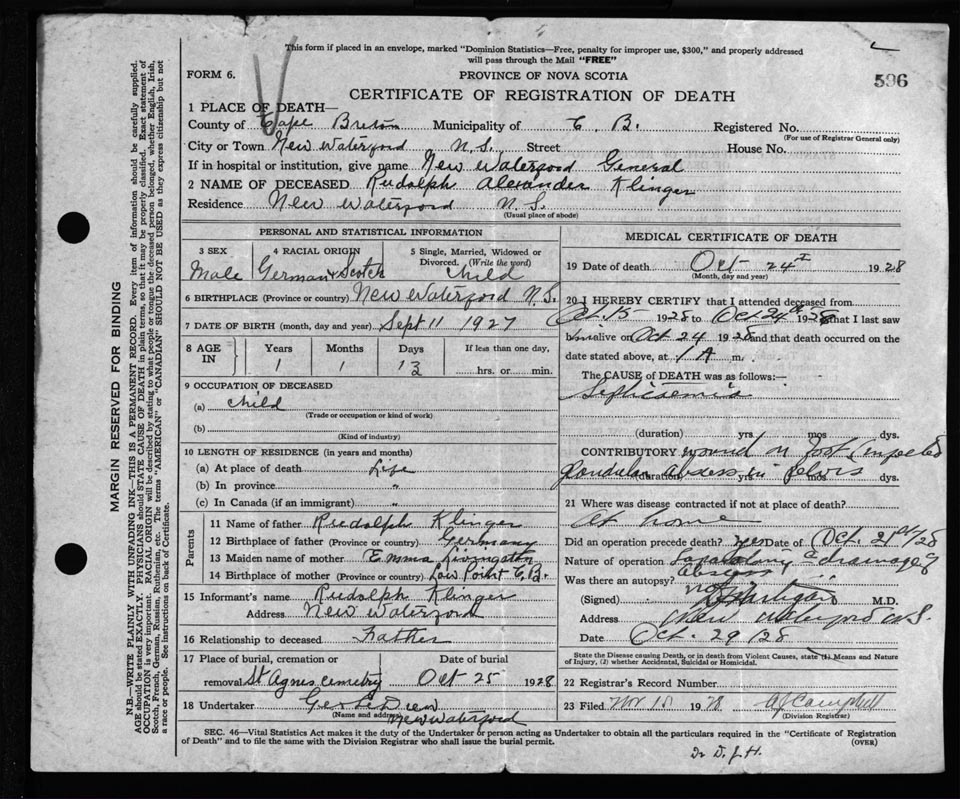 This form if placed in an envelope, marked "Dominion Statistics—Free, penalty for improper use, $300," and properly addressed
will pass through the Mail "FREE"
FORM 6.
PROVINCE OF NOVA SCOTIA
596
CERTIFICATE OF REGISTRATION OF DEATH
1 PLACE OF DEATH—
County of Cape Breton Municipality of C. B. Registered No.
(For use of Registrar General only)
City or Town New Waterford N.S. Street House No.
If in hospital or institution, give name New Waterford General
2 NAME OF DECEASED Rudolph Alexander Klinger
Residence New Waterford N.S.
(Usual place of abode)
PERSONAL AND STATISTICAL INFORMATION
3 SEX 4 RACIAL ORIGIN 5 Single, Married, Widowed or
Divorced. (Write the word)
Male German & Scotch Child
6 BIRTHPLACE (Province or country) New Waterford N.S.
7 DATE OF BIRTH (month, day and year) Sept 11 1927
8 AGE IN Years Months Days If less than one day,
1 1 13 hrs. or min.
9 OCCUPATION OF DECEASED
(a) Child
(Trade or occupation or kind of work)
(b)
(Kind of industry)
10 LENGTH OF RESIDENCE (in years and months)
(a) At place of death Life
(b) In province "
(c) In Canada (if an immigrant) "
Parents
11 Name of father Rudolph Klinger
12 Birthplace of father (Province or country) Germany
13 Maiden name of mother Emma Livingston
14 Birthplace of mother (Province or country) Low Point C.B.
15 Informant's name Rudolph Klinger
Address New Waterford
16 Relationship to deceased Father
17 Place of burial, cremation or Date of burial
removal St Agnes cemetry Oct 25 1928
18 Undertaker
(Name and address) New Waterford
MEDICAL CERTIFICATE OF DEATH
19 Date of death Oct 24 1928
(Month, day and year)
20 I HEREBY CERTIFY that I attended deceased from
Oct. 15 1928 to Oct 24 1928 that I last saw
him alive on Oct 24 1928 and that death occurred on the
date stated above, at 1 A m.
The CAUSE of DEATH was as follows:—
Septicaemia
(duration) yrs. mos. dys.
CONTRIBUTORY wound of foot (infected
glandular abscess in pelvis
(duration) yrs. mos. dys.
21 Where was disease contracted if not at place of death?
At home
Did an operation precede death? yes Date of Oct. 21st/28
Nature of operation drainage of
abscess
Was there an autopsy? no
(Signed) M.D.
Address New Waterford N.S.
Date Oct. 29/28
State the Disease causing Death, or in death from Violent Causes, state (1) Means and Nature
of Injury, (2) whether Accidental, Suicidal or Homicidal.
22 Registrar's Record Number
23 Filed Nov 10 1928 AJ Campbell
(Division Registrar)
SEC. 46—Vital Statistics Act makes it the duty of the Undertaker or person acting as Undertaker to obtain all the particulars required in the "Certificate of Registration
of Death" and to file the same with the Division Registrar who shall issue the burial permit.
(OVER)
Dr D.J.H.
MARGIN RESERVED FOR BINDING
N.B.—WRITE PLAINLY, WITH UNFADING INK—THIS IS A PERMANENT RECORD. Every item of information should be carefully supplied.
AGE should be stated EXACTLY. PHYSICIANS should STATE CAUSE OF DEATH in plain terms, so that it may be properly classified. Exact statement of
OCCUPATION is very important. RACIAL ORIGIN will be described by stating to what people or tongue the deceased person belonged, whether English, Irish,
Scotch, French, German, Russian, Ruthenian, etc. The terms "AMERICAN" or "CANADIAN" SHOULD NOT BE USED as they express citizenship but not
a race or people. See instructions on back of Certificate.